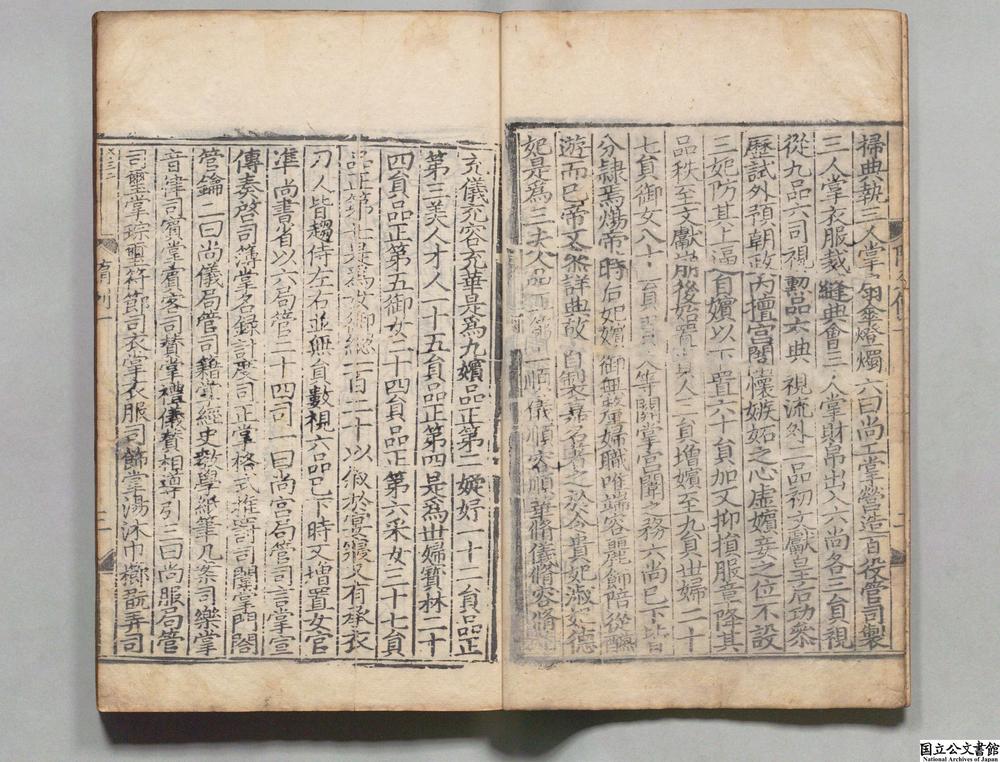 掃典執三人掌扇傘燈燭六曰尚工掌營造百役管司製
三人掌衣服裁縫典會三人掌財帛出入六尚各三員視
從九品六司視勳品六典視流外二品初文獻皇后功參
歷試外預朝政內擅宮闈懷嫉妬之心虛嬪妾之位不設
三妃防其上逼自嬪以下置六十員加又抑損服章降其
品秩至文獻崩後始置貴人三員增嬪至九員世婦二十
七員御女八十一員貴人等關掌宮闈之務六尚已下皆
分隸焉煬帝時后妃嬪御無釐婦職唯端容麗飾陪從醼
遊而已帝又參詳典故自製嘉名著之於令貴妃淑妃德
妃是爲三夫人品正第一順儀順容順華脩儀脩容脩華
充儀充容充華是爲九嬪品正第二婕妤一十二員品正
第三美人才人一十五員品正第四是爲世婦寶林二十
四員品正第五御女二十四員品正第六采女三十七員
品正第七是爲女御總一百二十以敘於宴寢又有承衣
刀人皆趨侍左右並無員數視六品已下時又增置女官
准尚書省以六局管二十四司一曰尚宮局管司言掌宣
傳奏啓司簿掌名錄計度司正掌格式推罰司闈掌門閤
管鑰二曰尚儀局管司籍掌經史教學紙筆几案司樂掌
音律司賓掌賓客司贊掌禮儀贊相導引三曰尚服局管
司璽掌琮璽符節司衣掌衣服司飾掌湯沐巾櫛翫弄司
国立公文書館
National Archives of Japan